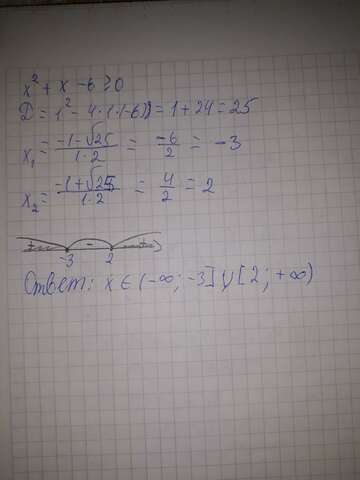 x² + x - 6 ≥ 0
D = 1² - 4·1·(-6) = 1 + 24 = 25
x₁ = (-1 - √25)/(1·2) = -6/2 = -3
x₂ = (-1 + √25)/(1·2) = 4/2 = 2
+ - +
-3 2
Ответ: x ∈ (-∞; -3] ∪ [2; +∞)